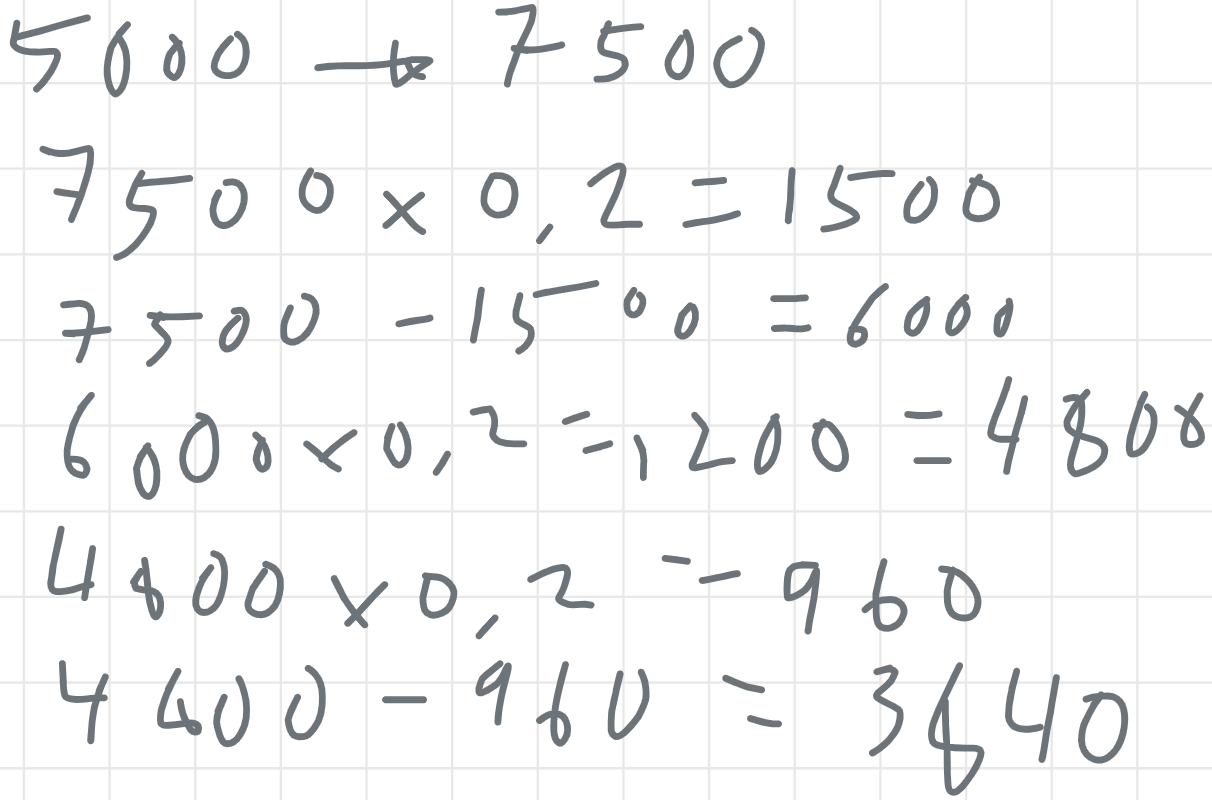 5000 → 7500
7500 × 0,2 = 1500
7500 - 1500 = 6000
6000 × 0,2 = 1200 = 4800
4800 × 0,2 = 960
4800 - 960 = 3840